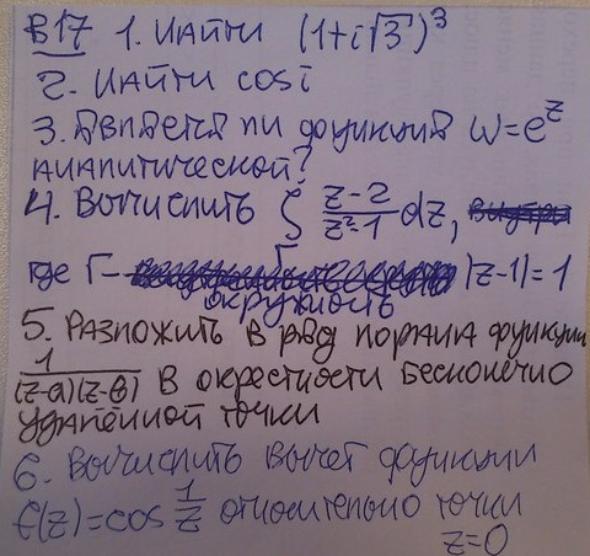 В17 1. Найти (1+i√3)³
2. Найти cos i
3. Является ли функция w=e^z
аналитической?
4. Вычислить ∫ (z-2)/(z²-1) dz,
Г
где Г- |z-1|=1
окружность
5. Разложить в ряд Лорана функции
1/((z-a)(z-b)) в окрестности бесконечно
удалённой точки
6. Вычислить вычет функции
f(z)=cos 1/z относительно точки
z=0